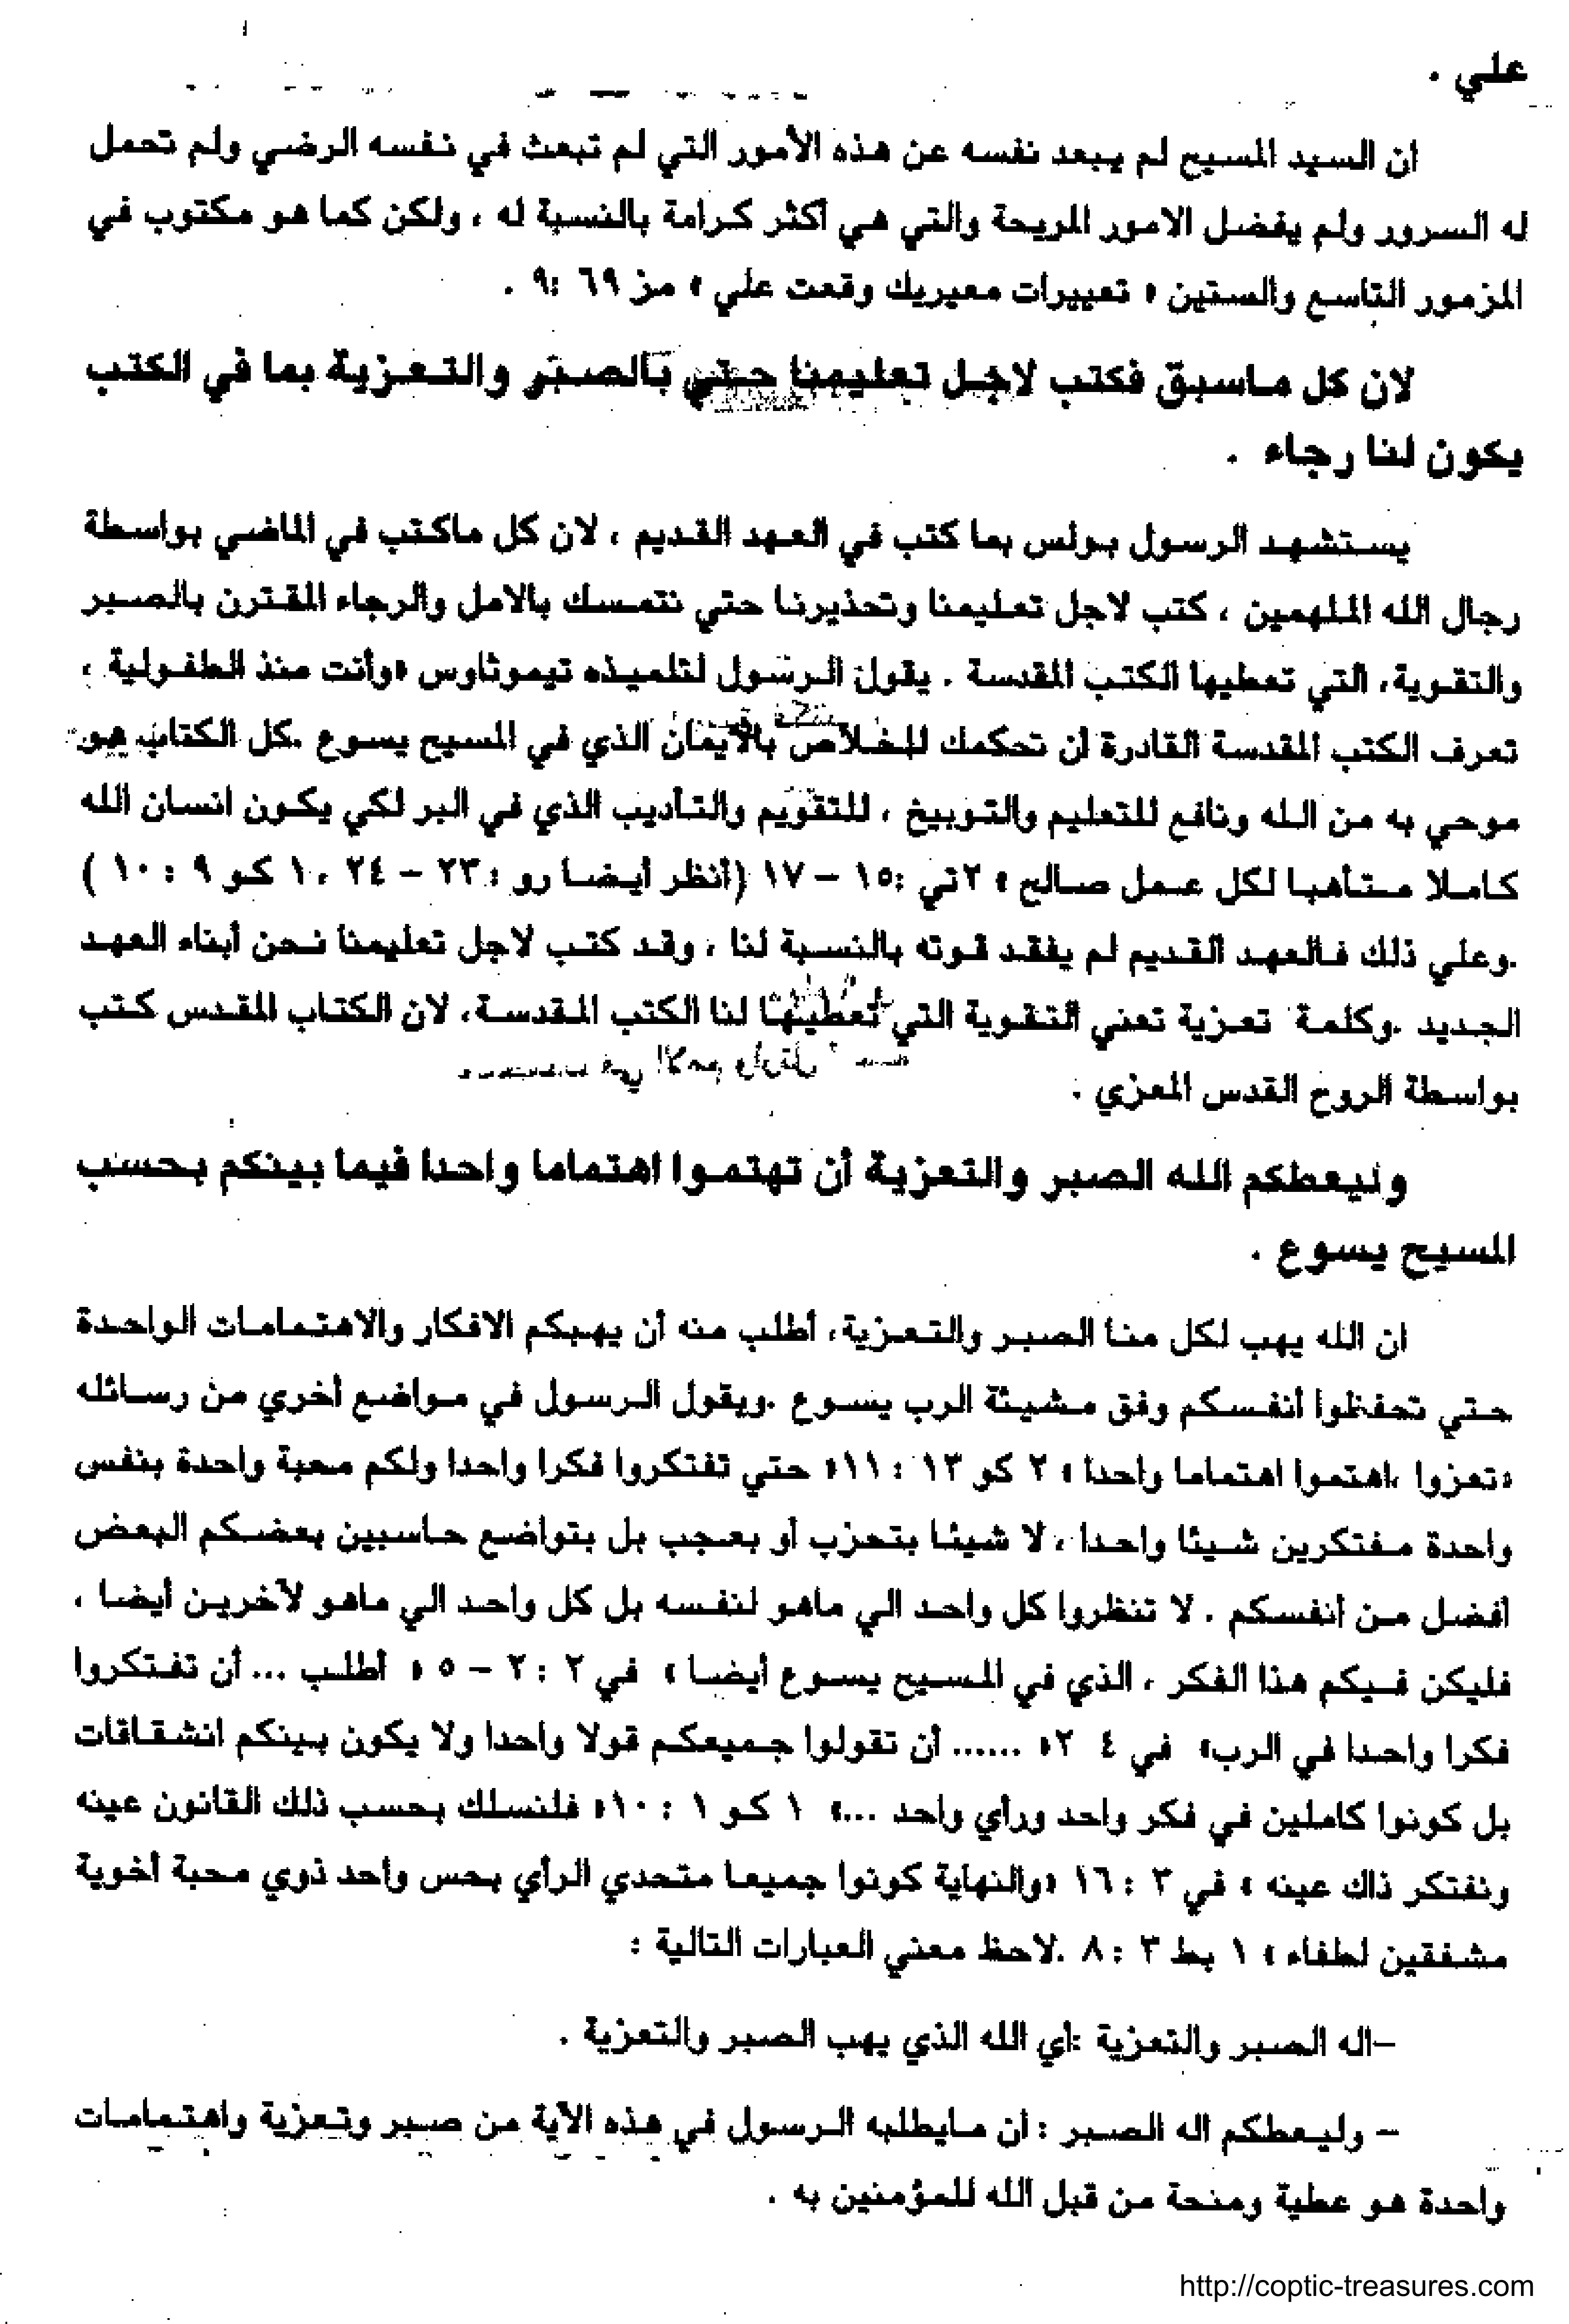 علي .
ان السيد المسيح لم يبعد نفسه عن هذه الأمور التي لم تبعث في نفسه الرضي ولم تحمل
له السرور ولم يفضل الامور المريحة والتي هي أكثر كرامة بالنسبة له ، ولكن كما هو مكتوب في
المزمور التاسع والستين « تعييرات معيريك وقعت علي » مز ٦٩ :٩ .
لان كل ماسبق فكتب لاجل تعليمنا حتي بالصبر والتعزية بما في الكتب
يكون لنا رجاء .
يستشهد الرسول بولس بما كتب في العهد القديم ، لان كل ماكتب في الماضي بواسطة
رجال الله الملهمين ، كتب لاجل تعليمنا وتحذيرنا حتي نتمسك بالامل والرجاء المقترن بالصبر
والتقوية، التي تعطيها الكتب المقدسة . يقول الرسول لتلميذه تيموثاوس «وأنت منذ الطفولية ،
تعرف الكتب المقدسة القادرة أن تحكمك للخلاص بالايمان الذي في المسيح يسوع .كل الكتاب هو
موحي به من الله ونافع للتعليم والتوبيخ ، للتقويم والتأديب الذي في البر لكي يكون انسان الله
كاملا متأهبا لكل عمل صالح » ٢تي :١٥ – ١٧ (أنظر أيضا رو : ٢٣ – ٢٤ ، ١ كو ٩ : ١٠ )
.وعلي ذلك فالعهد القديم لم يفقد قوته بالنسبة لنا ، وقد كتب لاجل تعليمنا نحن أبناء العهد
الجديد .وكلمة تعزية تعني التقوية التي تعطيها لنا الكتب المقدسة، لان الكتاب المقدس كتب
بواسطة الروح القدس المعزي .
وليعطكم الله الصبر والتعزية أن تهتموا اهتماما واحدا فيما بينكم بحسب
المسيح يسوع .
ان الله يهب لكل منا الصبر والتعزية، أطلب منه أن يهبكم الافكار والاهتمامات الواحدة
حتي تحفظوا أنفسكم وفق مشيئة الرب يسوع .ويقول الرسول في مواضع أخري من رسائله
«تعزوا ،اهتموا اهتماما واحدا » ٢ كو ١٣ : ١١« حتي تفتكروا فكرا واحدا ولكم محبة واحدة بنفس
واحدة مفتكرين شيئا واحدا ، لا شيئا بتحزب أو بعجب بل بتواضع حاسبين بعضكم البعض
أفضل من أنفسكم . لا تنظروا كل واحد الي ماهو لنفسه بل كل واحد الي ماهو لآخرين أيضا ،
فليكن فيكم هذا الفكر ، الذي في المسيح يسوع أيضا » في ٢ : ٢ – ٥ « أطلب ... أن تفتكروا
فكرا واحدا في الرب» في ٤ ٢« ...... أن تقولوا جميعكم قولا واحدا ولا يكون بينكم انشقاقات
بل كونوا كاملين في فكر واحد ورأي واحد ...» ١ كو ١ : ١٠« فلنسلك بحسب ذلك القانون عينه
ونفتكر ذاك عينه » في ٣ : ١٦ «والنهاية كونوا جميعا متحدي الرأي بحس واحد ذوي محبة أخوية
مشفقين لطفاء » ١ بط ٣ : ٨ .لاحظ معني العبارات التالية :
–اله الصبر والتعزية :أي الله الذي يهب الصبر والتعزية .
– وليعطكم اله الصبر : أن مايطلبه الرسول في هذه الآية من صبر وتعزية واهتمامات
واحدة هو عطية ومنحة من قبل الله للمؤمنين به .
http://coptic-treasures.com